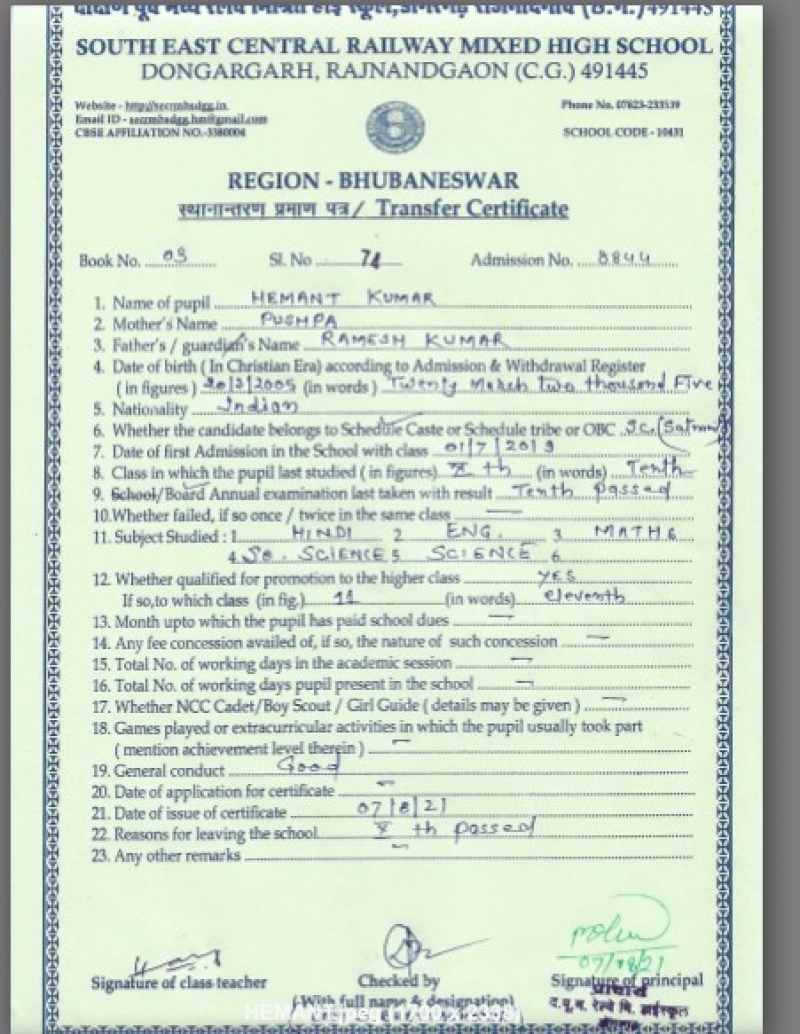 दक्षिण पूर्व मध्य रेलवे मिश्रित हाई स्कूल, डोंगरगढ़ राजनांदगांव (छ.ग.) 491445
SOUTH EAST CENTRAL RAILWAY MIXED HIGH SCHOOL
DONGARGARH, RAJNANDGAON (C.G.) 491445
Website - http://secrmhsdgg.in. Phone No. 07823-233539
Email ID - secrmhsdgg.hm@gmail.com
CBSE AFFILIATION NO.-3380004 SCHOOL CODE - 10431
REGION - BHUBANESWAR
स्थानान्तरण प्रमाण पत्र / Transfer Certificate
Book No. 03 Sl. No 74 Admission No. 8844
1. Name of pupil HEMANT KUMAR
2. Mother's Name PUSHPA
3. Father's / guardian's Name RAMESH KUMAR
4. Date of birth ( In Christian Era) according to Admission & Withdrawal Register
( in figures ) 20/3/2005 (in words ) Twenty March two thousand Five
5. Nationality Indian
6. Whether the candidate belongs to Schedule Caste or Schedule tribe or OBC SC. (Satnami)
7. Date of first Admission in the School with class 01/7/2019
8. Class in which the pupil last studied ( in figures) X th (in words) Tenth
9. School/Board Annual examination last taken with result Tenth passed
10.Whether failed, if so once / twice in the same class —
11. Subject Studied : 1 HINDI 2 ENG. 3 MATHS
4 So. SCIENCE 5 SCIENCE 6
12. Whether qualified for promotion to the higher class YES
If so,to which class (in fig.) 11 (in words) eleventh
13. Month upto which the pupil has paid school dues —
14. Any fee concession availed of, if so, the nature of such concession —
15. Total No. of working days in the academic session —
16. Total No. of working days pupil present in the school —
17. Whether NCC Cadet/Boy Scout / Girl Guide ( details may be given ) —
18. Games played or extracurricular activities in which the pupil usually took part
( mention achievement level therein ) —
19. General conduct Good
20. Date of application for certificate —
21. Date of issue of certificate 07/8/21
22. Reasons for leaving the school X th passed
23. Any other remarks —
07/08/21
Signature of class teacher Checked by Signature of principal
(With full name & designation) प्राचार्य
द.पू.म. रेल्वे मि. हाईस्कूल
HEMANT.jpeg (1700 x 2338)